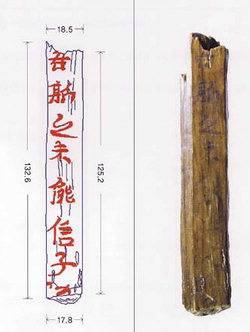 18.5
132.6
吾斯之未能信子
125.2
17.8